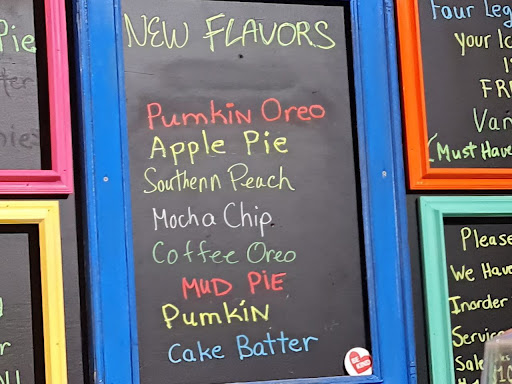 Pie
NEW FLAVORS
Pumkin Oreo
Apple Pie
Southenn Peach
Mocha Chip
Coffee Oreo
MUD PIE
Pumkin
Cake Batter
Four Leg
your Ic
FR
Van
(Must Have
Please
We Hav
Inorder
Servic
Sale